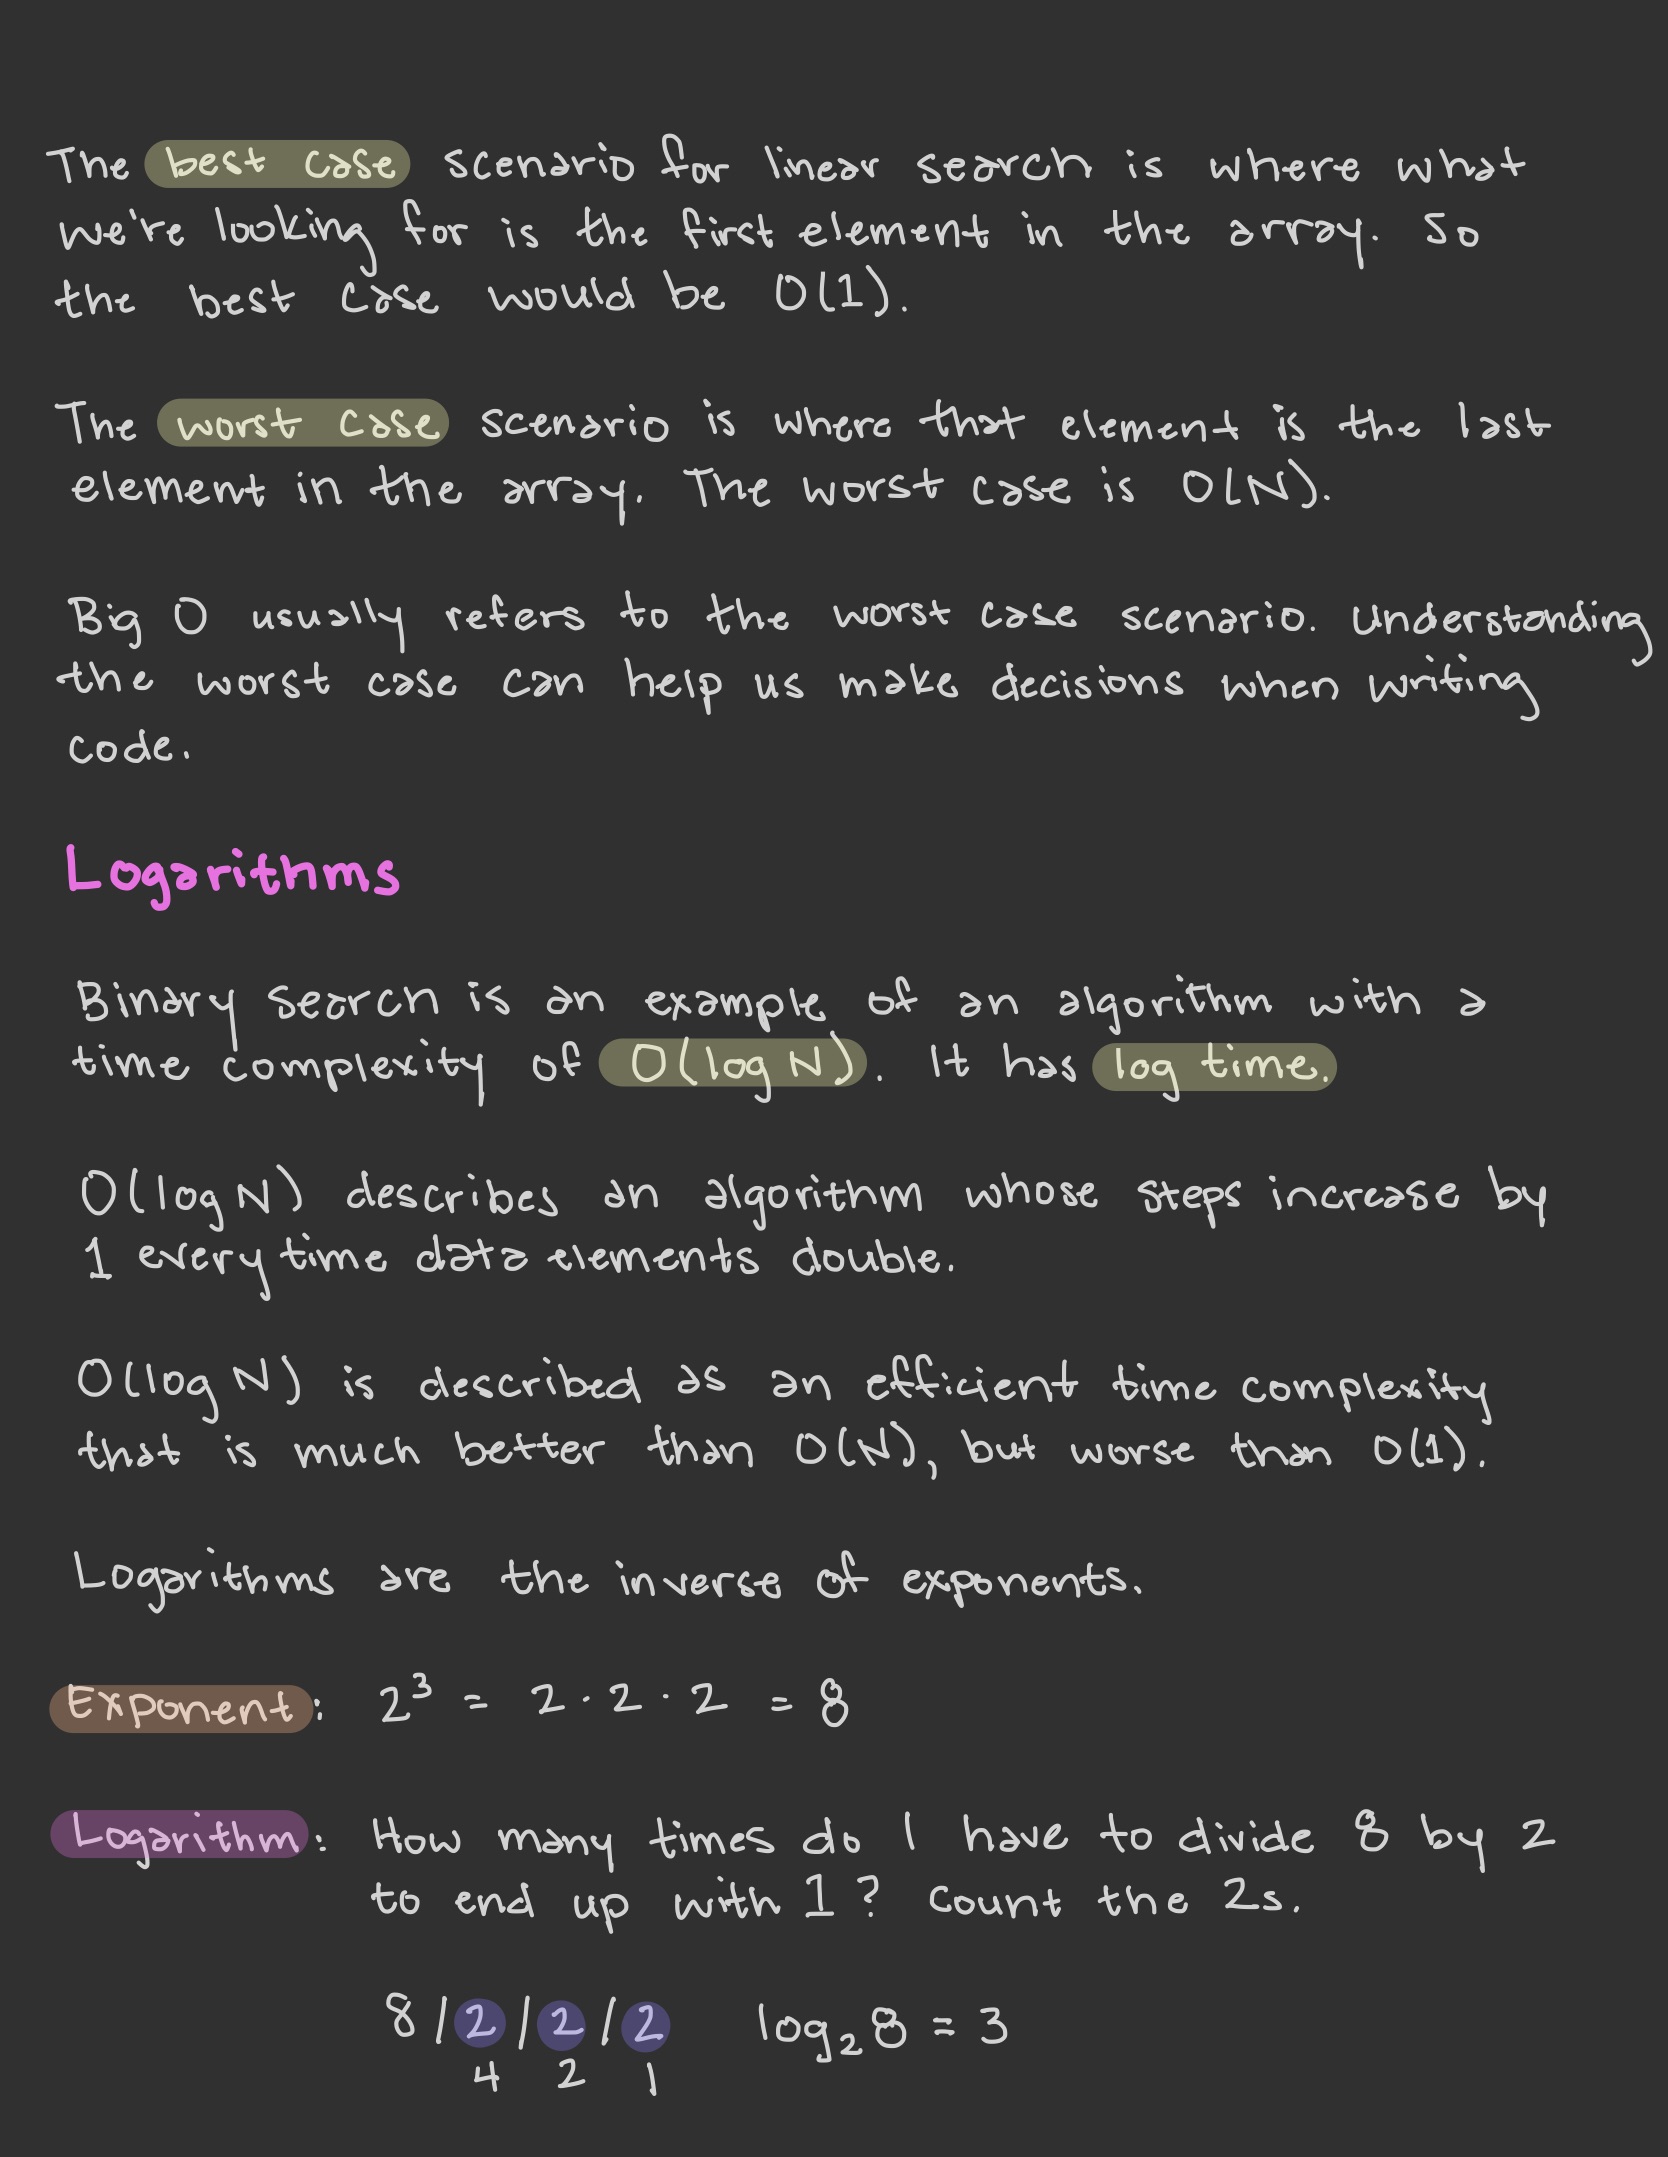 The best case scenario for linear search is where what
we're looking for is the first element in the array. So
the best case would be O(1).
The worst case scenario is where that element is the last
element in the array. The worst case is O(N).
Big O usually refers to the worst case scenario. Understanding
the worst case can help us make decisions when writing
code.
Logarithms
Binary search is an example of an algorithm with a
time complexity of O(log N). It has log time.
O(log N) describes an algorithm whose steps increase by
1 every time data elements double.
O(log N) is described as an efficient time complexity
that is much better than O(N), but worse than O(1).
Logarithms are the inverse of exponents.
Exponent: 2³ = 2 · 2 · 2 = 8
Logarithm: How many times do I have to divide 8 by 2
to end up with 1? Count the 2s.
8 / 2 / 2 / 2 log₂ 8 = 3
4 2 1